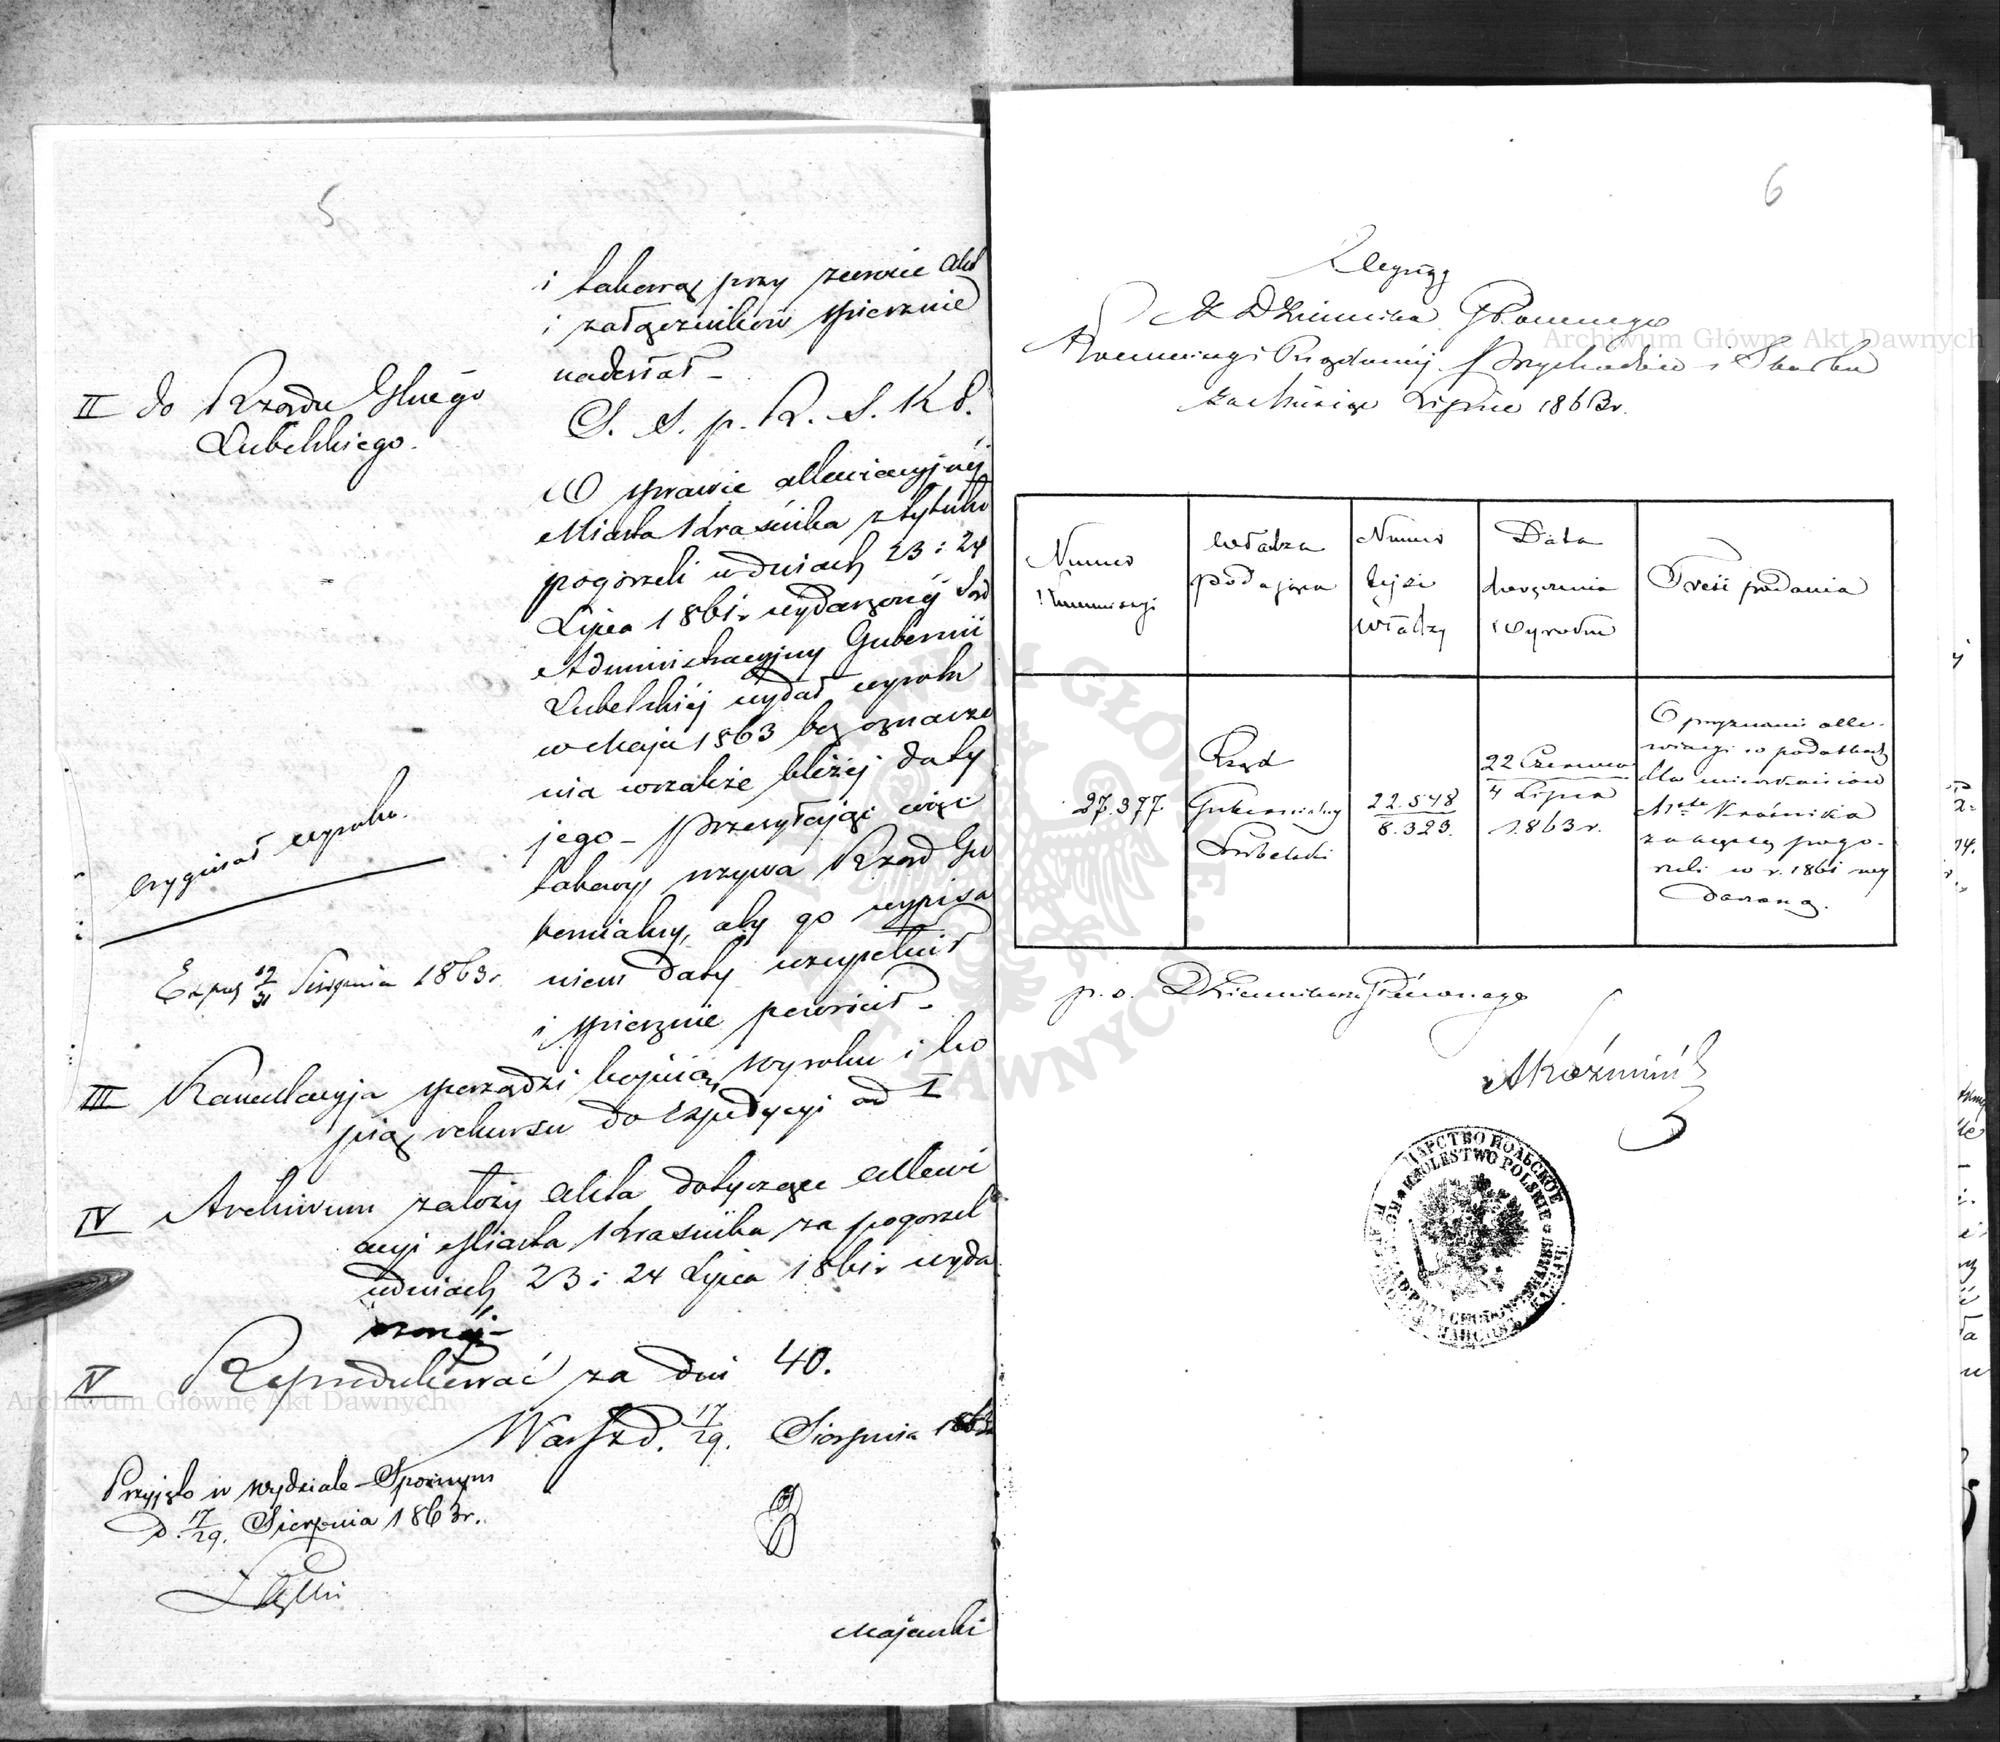 5
i takową przy zwrocie Akt
i załączników śpiesznie
nadesłał –
II do Rządu Glnego
Lubelskiego.
S. S. p. R. S. K S.
W sprawie allewiacyjnej
Miasta Kraśnika z tytułu
pogorzeli w dniach 23 i 24
Lipca 1861 r. wydarzonej Sąd
Administracyjny Gubernii
Lubelskiej wydał wyrok
w Maju 1863 bez oznacze
nia wszakże bliżej daty
jego – przesyłając więc
takowy wzywa Rząd Gu
bernialny, aby go wypisa
niem daty uzupełnił
i śpiesznie powrócił –
oryginał wyroku.
Exped 19/31 Sierpnia 1863 r.
III Kancellaryja sporządzi kopiią wyroku i ko
pią rekursu do expedycyi ad I
IV Archiwum założy Akta dotyczące Allewi
acyi Miasta Kraśnika za pogorzel
w dniach 23 i 24 Lipca 1861 r. wyda
rzonej –
V Reprodukować za dni 40.
Warsz d. 17/29. Sierpnia 1863
Przyjęto w Wydziale Spornym
d. 17/29. Sierpnia 1863 r.
Majewski
6
Z Dziennika Głównego
Kommissyi Rządowej Przychodów i Skarbu
za Miesiąc Lipiec 1863 r.
Numer
Kommissyi
Władza
podająca
Numer
tejże
Władzy
Data
doręczenia
Wyroku
Treść podania
27.377.
Rząd
Gubernialny
Lubelski
22.548
8.323.
22 Czerwca
4 Lipca
1863 r.
O przyznanie alle-
wiacyi w podatkach
dla mieszkańców
Mta Kraśnika
za klęskę pogo-
rzeli w r. 1861 wy
darzoną.
p. o. Dziennikarza Głównego
AKoźmiń
ЦАРСТВО ПОЛЬСКОЕ
KRÓLESTWO POLSKIE
Archiwum Główne Akt Dawnych
Archiwum Główne Akt Dawnych
ARCHIWUM GŁÓWNE AKT DAWNYCH